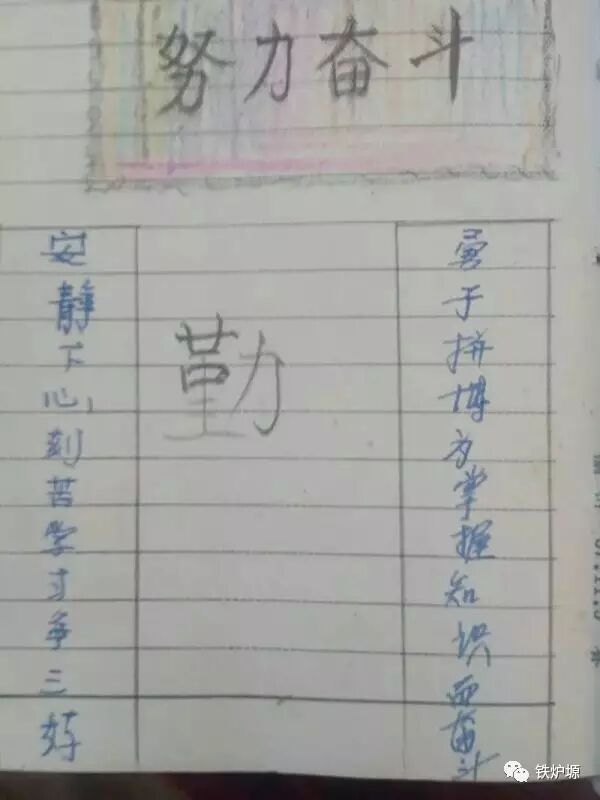 努力奋斗
勇于拼博为掌握知识而奋斗
勤
安静下心,刻苦学习争三好
铁炉塬